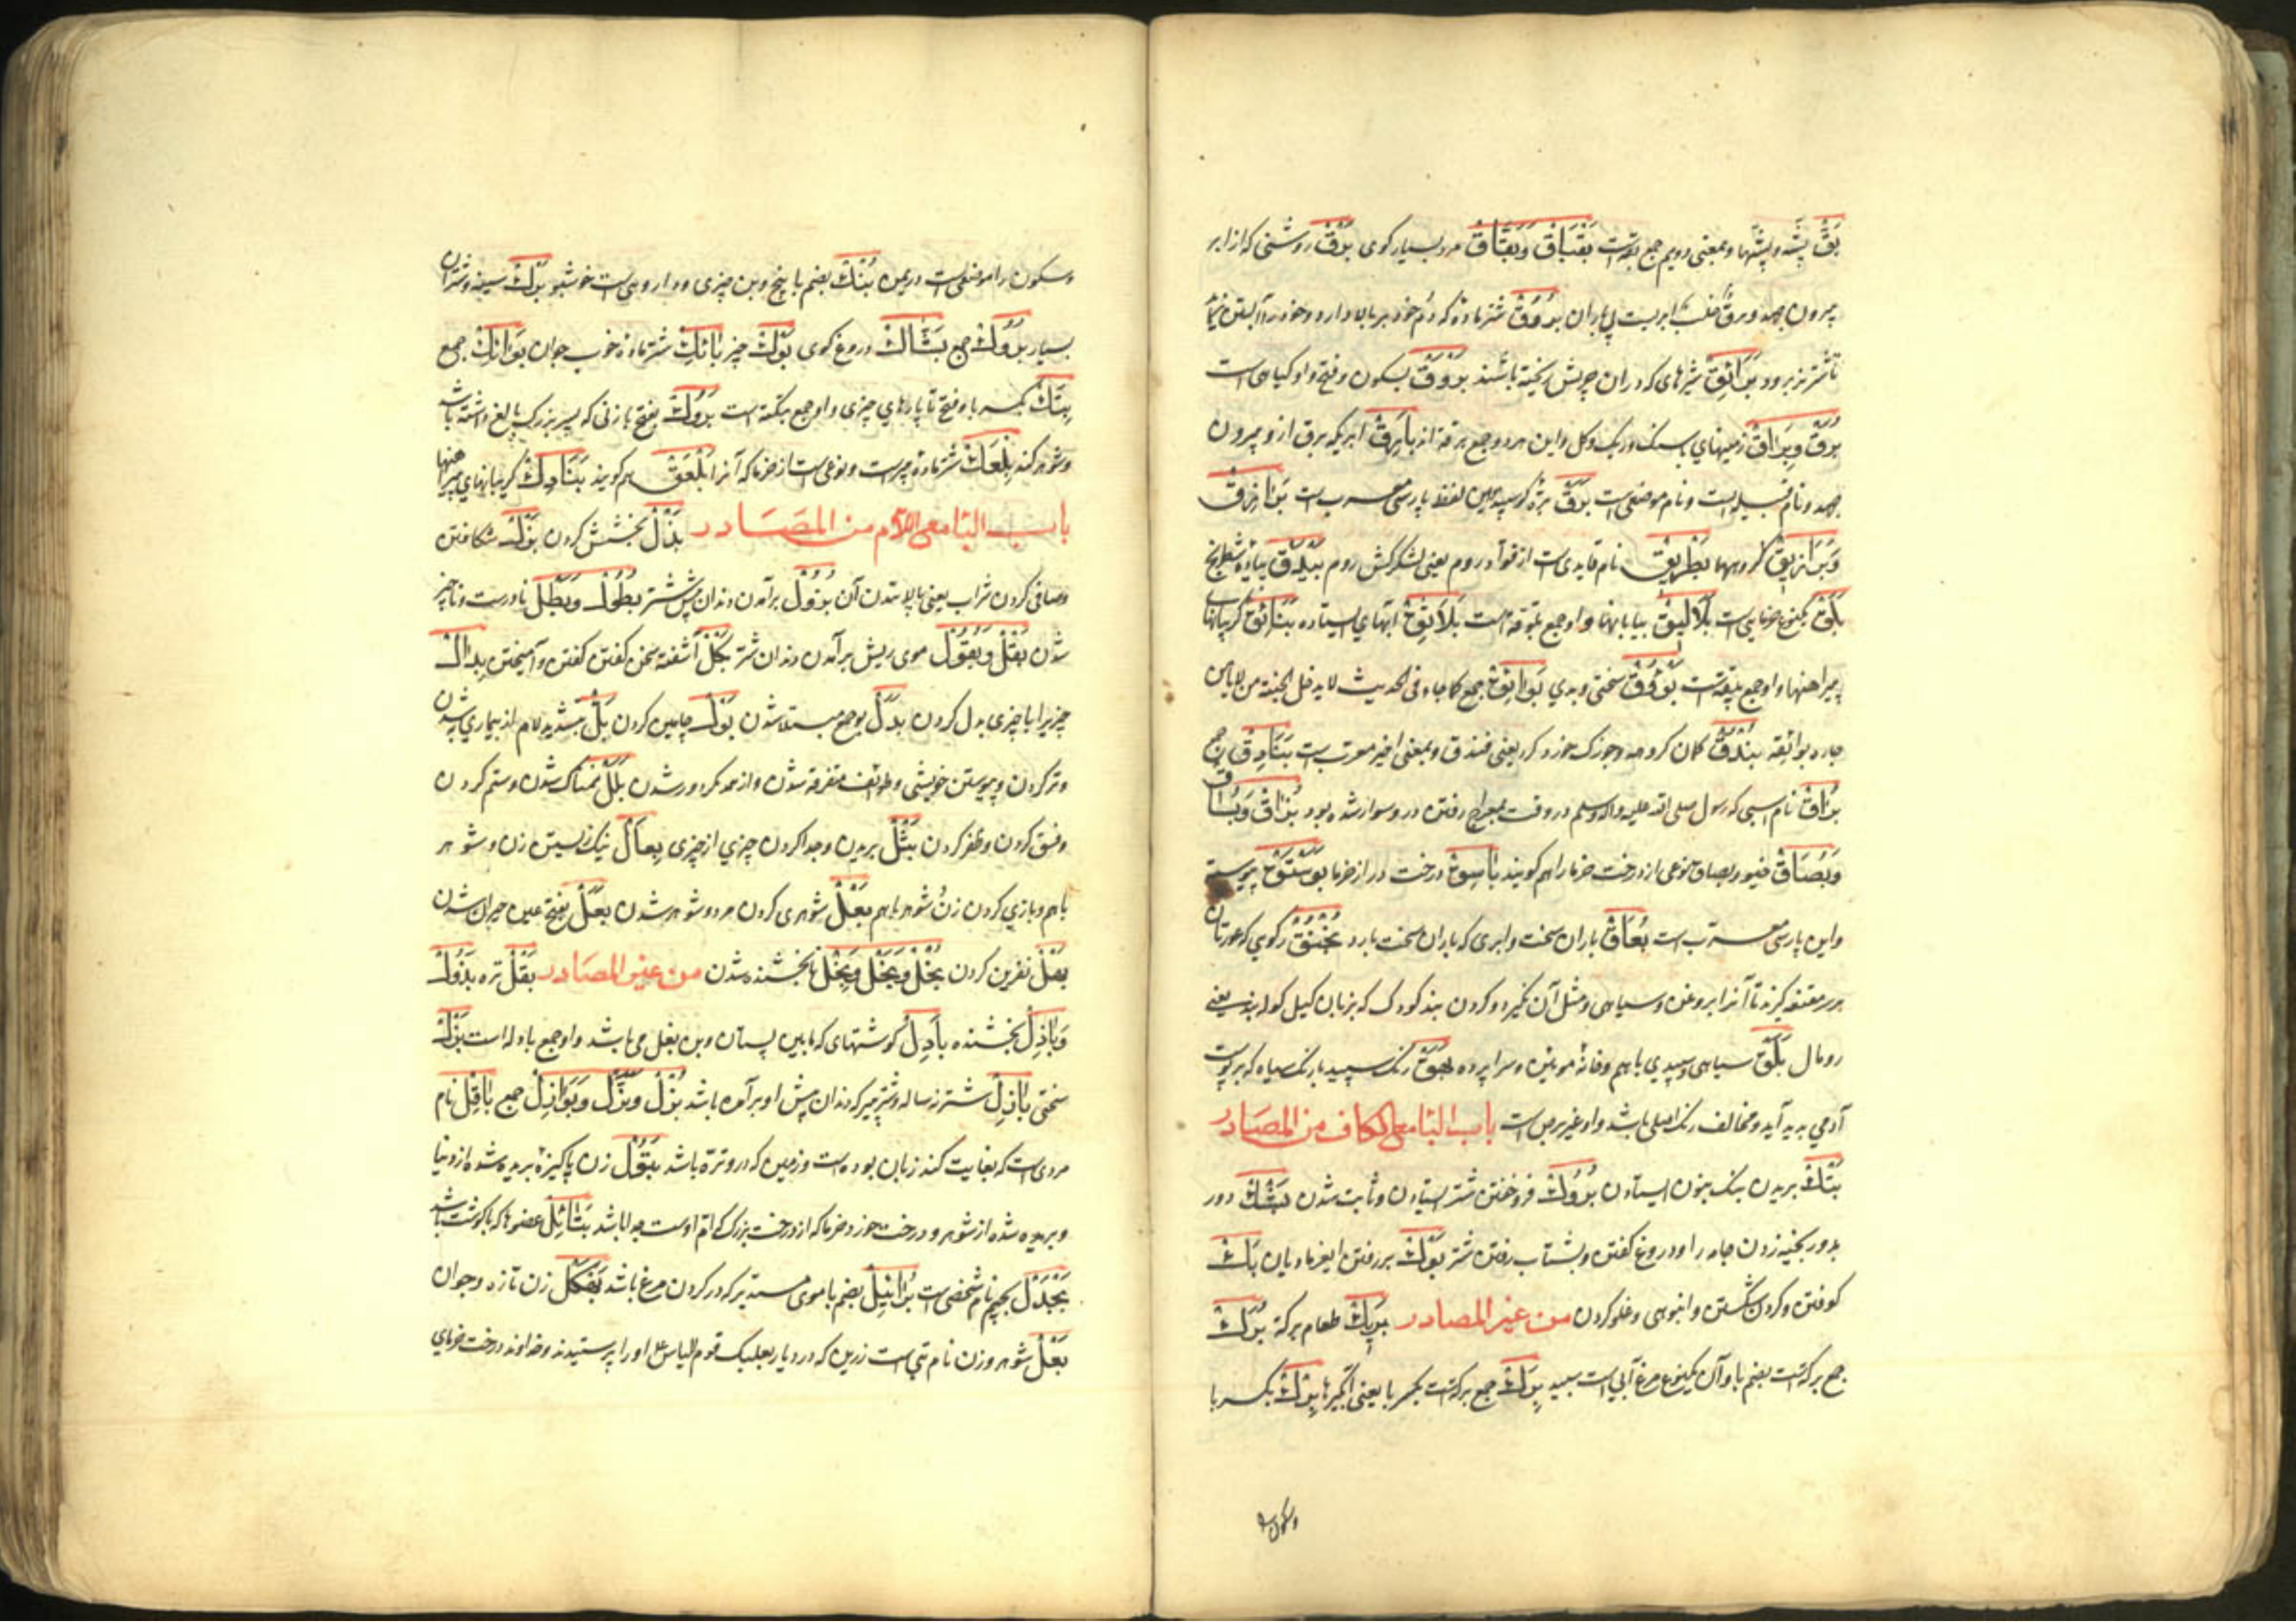 بَقّ پشّه و پشّها و بمعنی دویم جمع بقه است بَقْبَاقْ وَبَقَّاقْ مرد بسیار کوی بَرْق روشنی که از ابر
بیرون جهد و برق خلّب ابریست بی باران بَرُوْقْ شتر ماده که دُم خود بر بالا دارد و خود را آبستن نماید
تا شتر نر برود بَرَائِقْ شیرهای که در ان چربش ریخته باشند بَرْوَقْ بسکون و فتح واو کیاهی است
بُرَقْ وبِرَاقْ زمینهای باسنک و ریک و کل و این هر دو جمع برقة اند بَارِقْ ابریکه برق ازو بیرون
جهد و نام قبیله ایست و نام موضعی است بَرَقْ برّه کوسپند و این لفظ پارسی معرب است بَزَازِقْ
وَبَزَازِیْق کروهها بِطْرِیْق نام قایدی است از قوّاد روم یعنی لشکرکش روم بَیْدَقْ پیاده شطرنج
بَلَقْ یکنوع خرمایی است بَلَالِیْق بیابانها و او جمع بلّوقة است بَلَاثِقْ آبهای ایستاده بَنَائِقْ کریبانهای
پیراهنها و او جمع بنیقه است بَوْقْ سختی و بدی بَوَائِقْ جمع کما جاء فی الحدیث لا یدخل الجنة من لا یأمن
جاره بوائقه بُنْدُقْ کمان کروهه و جوزک خورد کرد یعنی فندق و بمعنی اخیر معرب است بَنَادِقْ جمع
بُرَاقْ نام اسبی که رسول صلی الله علیه واله وسلم در وقت بمعراج رفتن در و سوار شده بود بُزَاقْ وَبُسَاقْ
وَبُصَاقْ خیو و بصاق نوعی از درخت خرما را هم کویند بَاسِقْ درخت دراز خرما بُوسْتُقْ پیوسته
و این پارسی معرب است بُعَاقْ باران سخت و ابری که باران سخت بارد بُخْنُقْ رکویی که عورتان
بر سر مقنعه کیرند تا آنرا بروغن و سیاهی و مثل آن نکیرد و کردن بند کودک که بزبان کیل کوله بند یعنی
رومال بَلَقْ سیاهی و سپیدی باهم و خانه مویین و سراپرده بَهَقْ رنک سپید یا رنک سیاه که بر پوست
آدمی بدید آید و مخالف رنک اصلی باشد و او غیر برص است باب البا مع الکاف من المصادر
بَتْكْ بریدن بنک بنون ایستادن بُرُوْكْ فروخفتن شتر ایستادن و ثابت شدن بَشْكْ دور
بدور بخیه زدن جامه را و دروغ کفتن و بشتاب رفتن شتر بَوْكْ بر رفتن ایغر مادیان بَكّ
کوفتن و کردن شکستن و انبوهی و غلو کردن من غیر المصادر بَرِیْكْ طعام برکة بُرَكْ
جمع برکة است بضم با و آن یکنوع مرغ آبی است سپید بِرَكْ جمع برکة است بکسر با یعنی آبکیرها بِرْكْ بکسر با
وسکون را
وسکون را موضعی است در یمن بُنْكْ بضم با بیخ و بن چیزی و داروهی است خوشبو بَرْكْ سینه و شتران
بسیار بُرُوْكْ جمع بَشَّاكْ دروغ کوی بَوْكْ چیز بَائِكْ شتر ماده خوب جوان بَوَائِكْ جمع
بِتَكْ بکسر با و فتح تا پارهای چیزی و او جمع بتکة است بَرُوْكْ بفتح با زنی که پسر بزرک بالغ داشته باشد
و شوهر کند بِلْعَكْ شتر ماده پیر است و نوعی است از خرما که آنرا بَلْعَقْ هم کویند بَنَادِكْ کریبانهای پیراهنها
باب البا مع اللام من المصادر بَذْلْ بخشش کردن بَزْلْ شکافتن
و صافی کردن شراب یعنی پالاندن آن بُزُوْلْ برآمدن دندان پیش شتر بُطُوْلْ وبُطْلْ نادرست و ناچیز
شدن بَقْلْ وَبُقُوْلْ موی ریش برآمدن دندان شتر بَكْلْ آشفته سخن کفتن کفتن و آمیختن بِدَالْ
چیزیرا با چیزی بدل کردن بَدَلْ بوجع مبتلا شدن بَوْلْ چامین کردن بَلّ بتشدید لام از بیماری به شدن
و تر کردن و پیوستن خویشی و طوائف متفرقه شدن و از همدکر دور شدن بَلَلْ نمناک شدن و ستم کردن
و فسق کردن و ظفر کردن بَتْلْ بریدن و جدا کردن چیزی از چیزی بِعَالْ نیک زیستن زن و شوهر
باهم و بازی کردن زن شوهر باهم بَعْلْ شوهری کردن مرد و شوهر شدن بَعَلْ بفتح عین حیران شدن
بَهْلْ نفرین کردن بُخْلْ وبَخَلْ وبَخْلْ نابخشنده شدن من غیر المصادر بَقْلْ تره بَذُوْلْ
وَبَاذِلْ بخشنده بَآدِلْ کوشتهای که مابین پستان و بن بغل می باشد و او جمع بادله است بَزْلْ
سختی بَازِلْ شتر نه ساله و شتر پیر که دندان پیش او برآمده باشد بُزْلْ وبُزَّلْ وَبَوَازِلْ جمع بَاقِلْ نام
مردی است که بغایت کند زبان بوده است و زمین که در و تره باشد بَتُوْلْ زن پاکیزه بریده شده از دنیا
و بریده شده از شوهر و درخت خورد خرما که از درخت بزرک که ام اوست جدا باشد بَتَائِلْ عضوها که با کوشت باشد
بَجْدَلْ بجیم نام شخصی است بُرَائِیْلْ بضم با موی مستدیر که در کردن مرغ باشد بَهْكَلْ زن تازه و جوان
بَعْلْ شوهر و زن نام بتی است زرین که در دیار بعلبک قوم الیاس ع اورا پرستیدند و خداوند و درخت خرمای